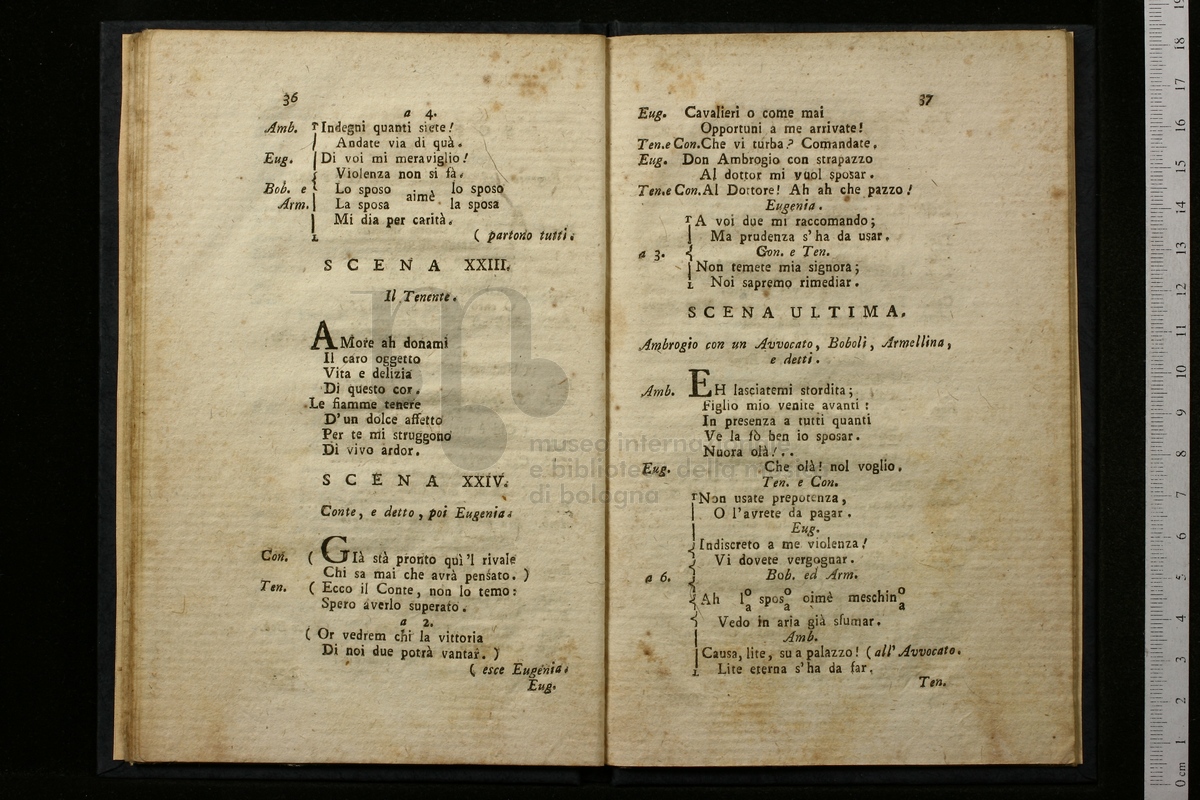 36
a 4.
Amb. Indegni quanti siete!
Andate via di quà.
Eug. Di voi mi meraviglio!
Violenza non si fà.
Bob. e Lo sposo aimè lo sposo
Arm. La sposa la sposa
Mi dia per carità.
( partono tutti.
SCENA XXIII.
Il Tenente.
AMore ah donami
Il caro oggetto
Vita e delizia
Di questo cor.
Le fiamme tenere
D'un dolce affetto
Per te mi struggono
Di vivo ardor.
SCENA XXIV.
Conte, e detto, poi Eugenia.
Con. ( GIà stà pronto quì 'l rivale
Chi sa mai che avrà pensato. )
Ten. ( Ecco il Conte, non lo temo:
Spero averlo superato.
a 2.
( Or vedrem chi la vittoria
Di noi due potrà vantar. )
( esce Eugenia.
Eug.
37
Eug. Cavalieri o come mai
Opportuni a me arrivate!
Ten.e Con.Che vi turba? Comandate.
Eug. Don Ambrogio con strapazzo
Al dottor mi vuol sposar.
Ten.e Con.Al Dottore! Ah ah che pazzo!
Eugenia.
A voi due mi raccomando;
Ma prudenza s'ha da usar.
a 3. Con. e Ten.
Non temete mia signora;
Noi sapremo rimediar.
SCENA ULTIMA.
Ambrogio con un Avvocato, Boboli, Armellina,
e detti.
Amb. EH lasciatemi stordita;
Figlio mio venite avanti:
In presenza a tutti quanti
Ve la fò ben io sposar.
Nuora olà!..
Eug. Che olà! nol voglio.
Ten. e Con.
Non usate prepotenza,
O l'avrete da pagar.
Eug.
Indiscreto a me violenza!
Vi dovete vergognar.
a 6. Bob. ed Arm.
Ah l o/a spos o/a oimè meschin o/a
Vedo in aria già sfumar.
Amb.
Causa, lite, su a palazzo! (all' Avvocato.
Lite eterna s'ha da far.
Ten.
museo internazionale
e biblioteca della musica
di bologna
0 cm 1 2 3 4 5 6 7 8 9 10 11 12 13 14 15 16 17 18 19